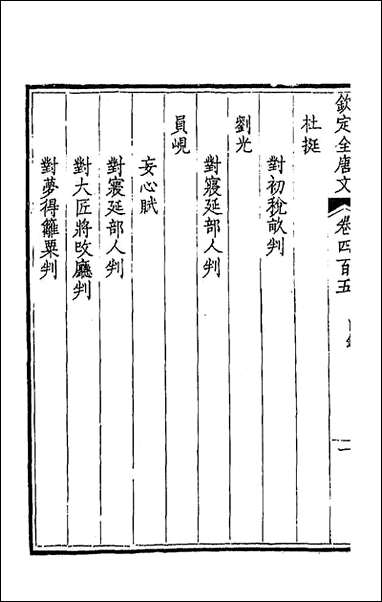 欽定全唐文 卷四百五 目錄 一
杜挺
對初稅畝判
劉光
對寢延部人判
員峴
妄心賦
對寢延部人判
對大匠將改廳判
對夢得籬粟判